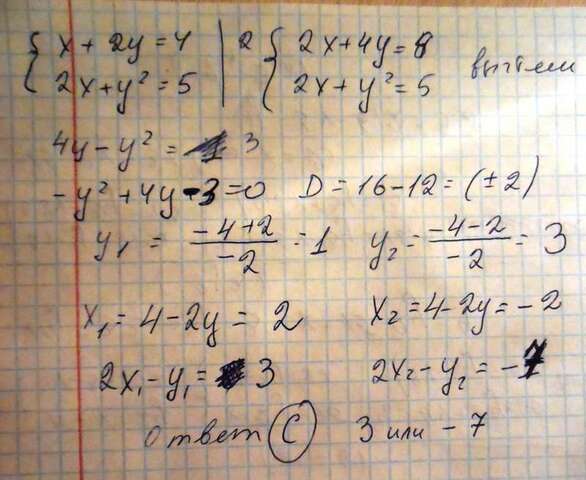 { x + 2y = 4 | 2 { 2x + 4y = 8
{ 2x + y² = 5 | { 2x + y² = 5 вычтем
4y - y² = 3
-y² + 4y - 3 = 0 D = 16 - 12 = (±2)
y₁ = (-4+2)/(-2) = 1 y₂ = (-4-2)/(-2) = 3
x₁ = 4 - 2y = 2 x₂ = 4 - 2y = -2
2x₁ - y₁ = 3 2x₂ - y₂ = -7
ответ C 3 или -7